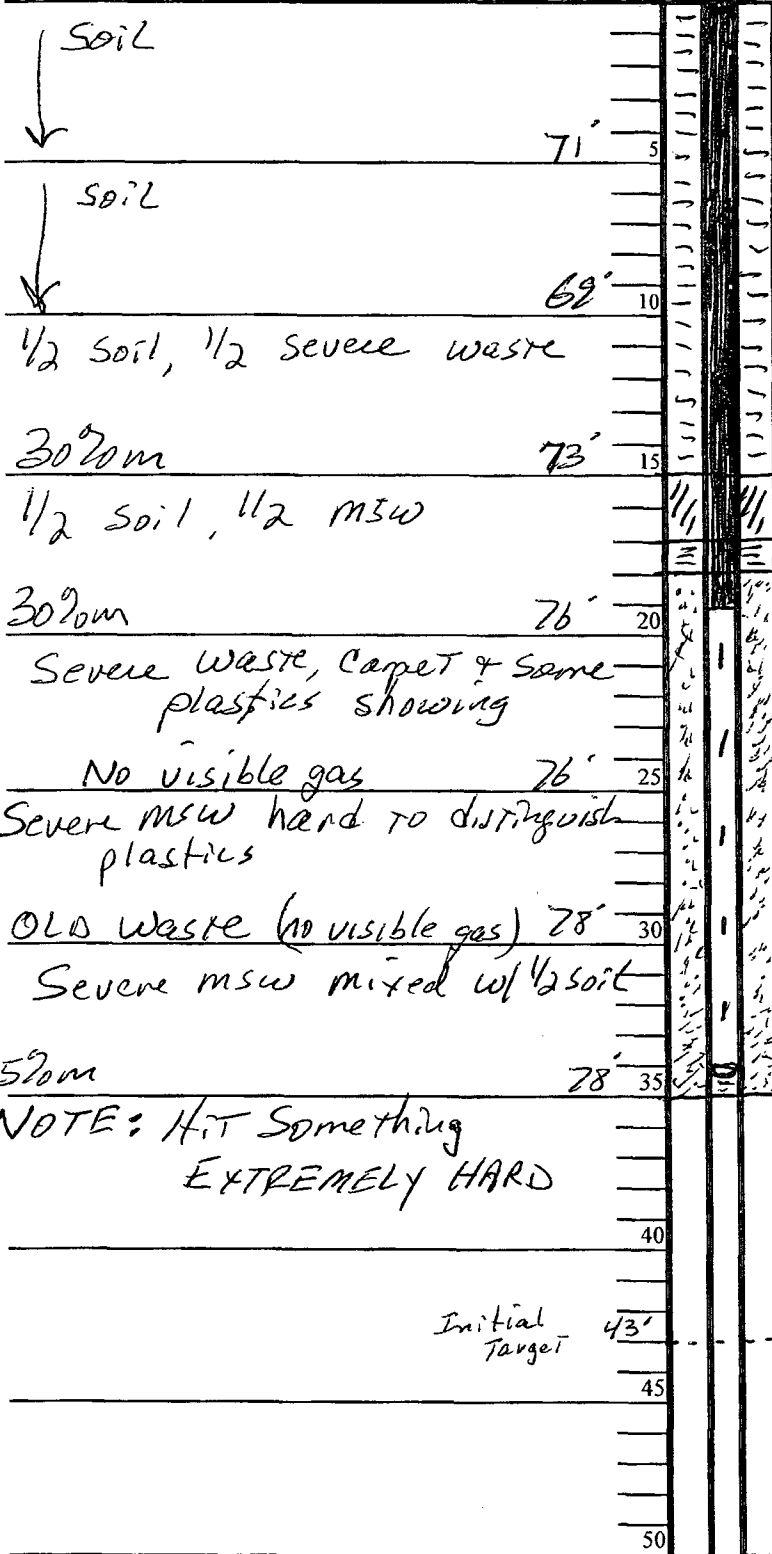 Soil
71' 5
Soil
69' 10
1/2 Soil, 1/2 Severe waste
30%m 73' 15
1/2 Soil, 1/2 MSW
30%m 76' 20
Severe Waste, Carpet & Some
plastics showing
No visible gas 76' 25
Severe MSW hard to distinguish
plastics
OLD Waste (no visible gas) 78' 30
Severe MSW mixed w/ 1/2 soil
5%m 78' 35
NOTE: HiT Something
EXTREMELY HARD
40
Initial 43'
Target
45
50